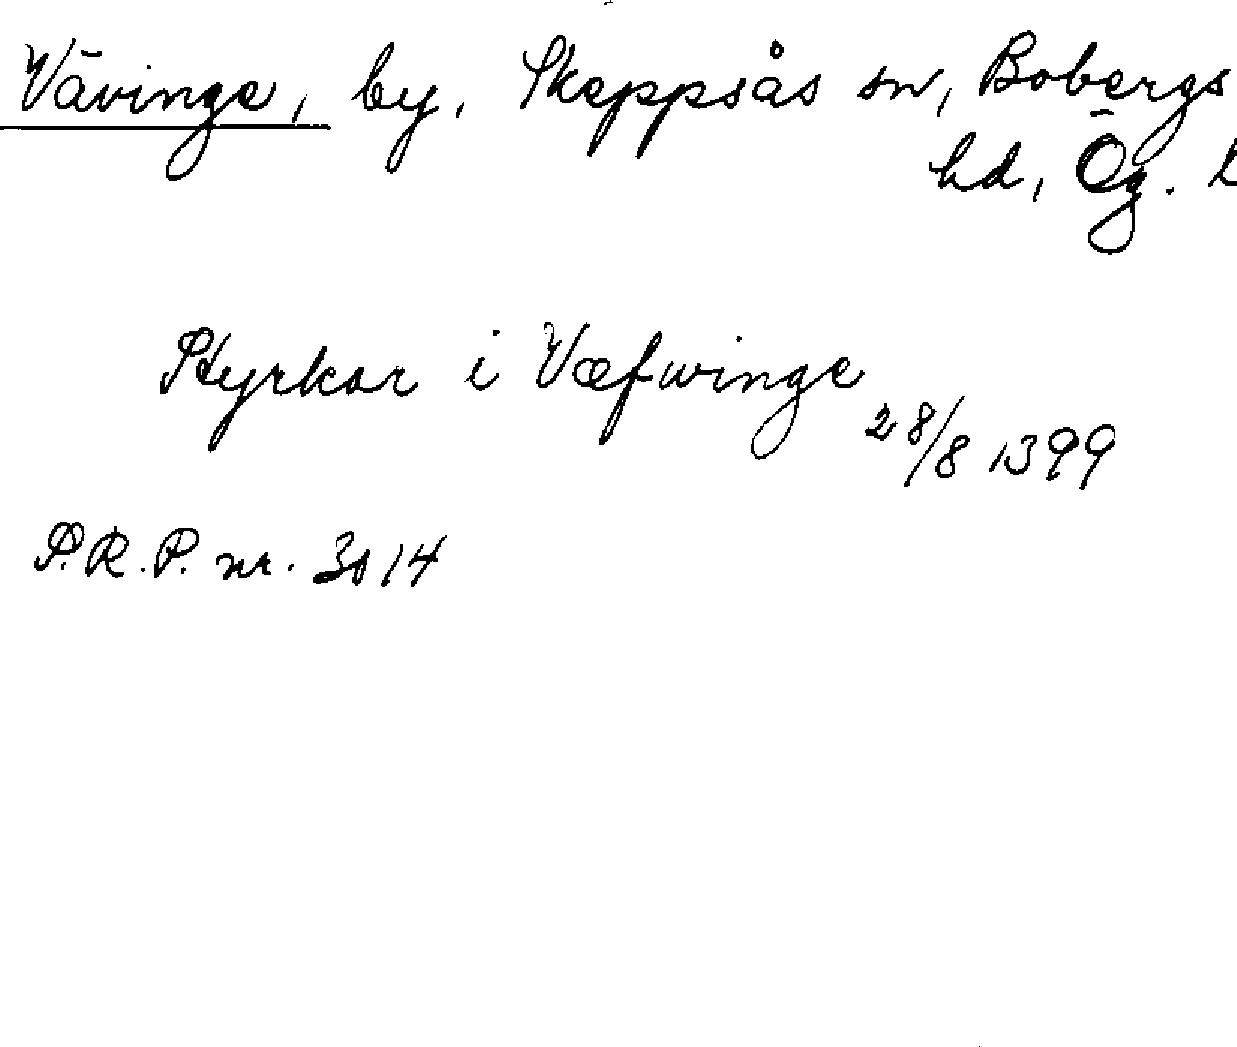 Vävinge, by, Skeppsås sn, Bobergs
hd, Ög. l
Styrkar i Væfwinge
28/8 1399
P.R.P. nr. 3014